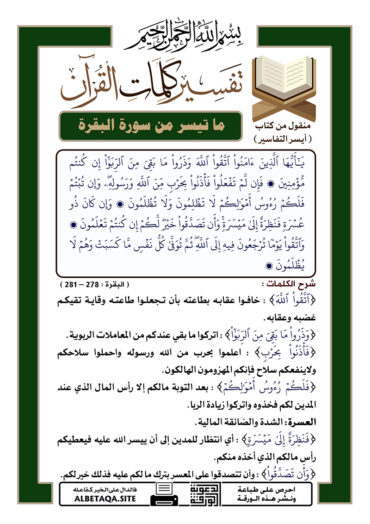 بِسْمِ اللَّهِ الرَّحْمَنِ الرَّحِيمِ
تفسير كلمات القرآن
ما تيسر من سورة البقرة
منقول من كتاب
( أيسر التفاسير )
يَـٰٓأَيُّهَا ٱلَّذِينَ ءَامَنُوا۟ ٱتَّقُوا۟ ٱللَّهَ وَذَرُوا۟ مَا بَقِىَ مِنَ ٱلرِّبَوٰٓا۟ إِن كُنتُم
مُّؤْمِنِينَ ۞ فَإِن لَّمْ تَفْعَلُوا۟ فَأْذَنُوا۟ بِحَرْبٍ مِّنَ ٱللَّهِ وَرَسُولِهِۦ وَإِن تُبْتُمْ
فَلَكُمْ رُءُوسُ أَمْوَٰلِكُمْ لَا تَظْلِمُونَ وَلَا تُظْلَمُونَ ۞ وَإِن كَانَ ذُو
عُسْرَةٍ فَنَظِرَةٌ إِلَىٰ مَيْسَرَةٍ وَأَن تَصَدَّقُوا۟ خَيْرٌ لَّكُمْ إِن كُنتُمْ تَعْلَمُونَ ۞
وَٱتَّقُوا۟ يَوْمًا تُرْجَعُونَ فِيهِ إِلَى ٱللَّهِ ثُمَّ تُوَفَّىٰ كُلُّ نَفْسٍ مَّا كَسَبَتْ وَهُمْ لَا
يُظْلَمُونَ ۞
شرح الكلمات : ( البقرة : 278 – 281 )
﴿ٱتَّقُوا۟ ٱللَّهَ﴾ : خافوا عقابه بطاعته بأن تجعلوا طاعته وقاية تقيكم
غضبه وعقابه.
﴿وَذَرُوا۟ مَا بَقِىَ مِنَ ٱلرِّبَوٰٓا۟﴾ : اتركوا ما بقي عندكم من المعاملات الربوية.
﴿فَأْذَنُوا۟ بِحَرْبٍ﴾ : اعلموا بحرب من الله ورسوله واحملوا سلاحكم
ولاينفعكم سلاح فإنكم المهزومون الهالكون.
﴿فَلَكُمْ رُءُوسُ أَمْوَٰلِكُمْ﴾ : بعد التوبة مالكم إلا رأس المال الذي عند
المدين لكم فخذوه واتركوا زيادة الربا.
العسرة: الشدة والضائقة المالية.
﴿فَنَظِرَةٌ إِلَىٰ مَيْسَرَةٍ﴾ : أي انتظار للمدين إلى أن ييسر الله عليه فيعطيكم
رأس مالكم الذي أخذه منكم.
﴿وَأَن تَصَدَّقُوا۟﴾ : وأن تتصدقوا على المعسر بترك ما لكم عليه فذلك خير لكم.
احرص على طباعة
ونشر هذه الورقة
الدعوية
الورقة
فالدال على الخير كفاعله
ALBETAQA.SITE